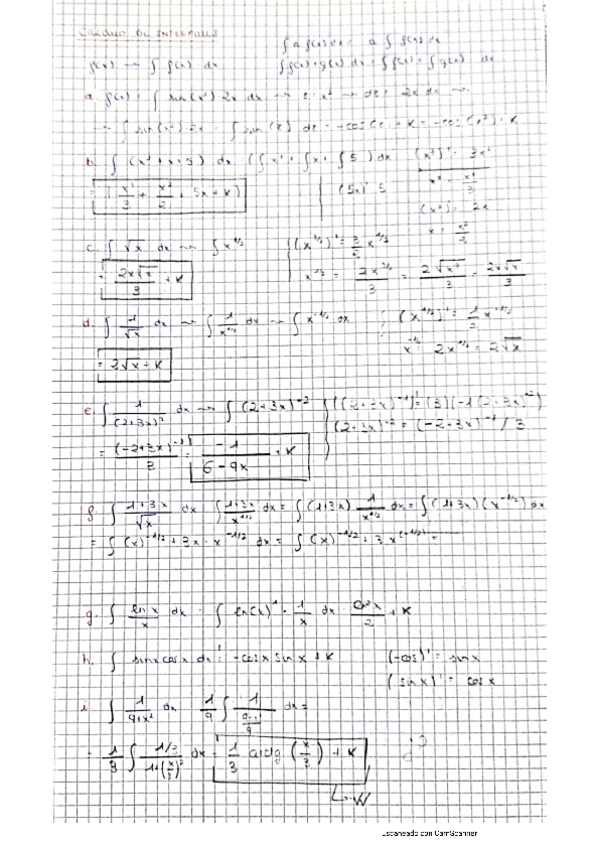 CALCULO DE INTEGRALES
∫ a f(x) dx = a ∫ f(x) dx
f(x) → ∫ f(x) dx
∫ f(x) + g(x) dx = ∫ f(x) + ∫ g(x) dx
a. f(x) = ∫ sin(x²) 2x dx → t = x² → dt = 2x dx →
→ ∫ sin(x²) 2x = ∫ sin(t) dt = -cos(t) + K = -cos(x²) + K
b. ∫ (x² + x + 5) dx (∫ x² + ∫ x + ∫ 5) dx (x³)' = 3x²
= ( x³/3 + x²/2 + 5x + K ) (5x)' 5 x² = x³/3
(x²)' = 2x
x = x²/2
c. ∫ √x dx → ∫ x^1/2 (x^3/2)' = 3/2 x^1/2
= 2x√x/3 + K x^1/2 = 2x^3/2/3 = 2√x³/3 = 2x√x/3
d. ∫ 1/√x dx → ∫ 1/x^1/2 dx → ∫ x^-1/2 dx (x^1/2)' = 1/2 x^-1/2
= 2√x + K x^-1/2 = 2x^1/2 = 2√x
e. ∫ 1/(2+3x)² dx → ∫ (2+3x)^-2 ((2+3x)^-1)' = (3)(-1(2+3x)^-2)
(2+3x)^-2 = (-2+3x)^-1 / 3
= (-2+3x)^-1/3 = -1/6-9x + K
f. ∫ 1+3x/√x dx ∫ 1+3x/x^1/2 dx = ∫ (1+3x) 1/x^1/2 dx = ∫ (1+3x)(x^-1/2) dx
= ∫ (x)^-1/2 + 3x · x^-1/2 dx = ∫ (x)^-1/2 + 3x
g. ∫ ln x/x dx = ∫ ln(x)¹ · 1/x dx = ln²x/2 + K
h. ∫ sinx cosx dx = -cosx sinx + K (-cos)' = sinx
(sinx)' = cosx
i. ∫ 1/9+x² dx 1/9 ∫ dx =
= 1/9 ∫ 1/3/1+(x/3)² dx = 1/3 arctg (x/3) + K
Escaneado con CamScanner